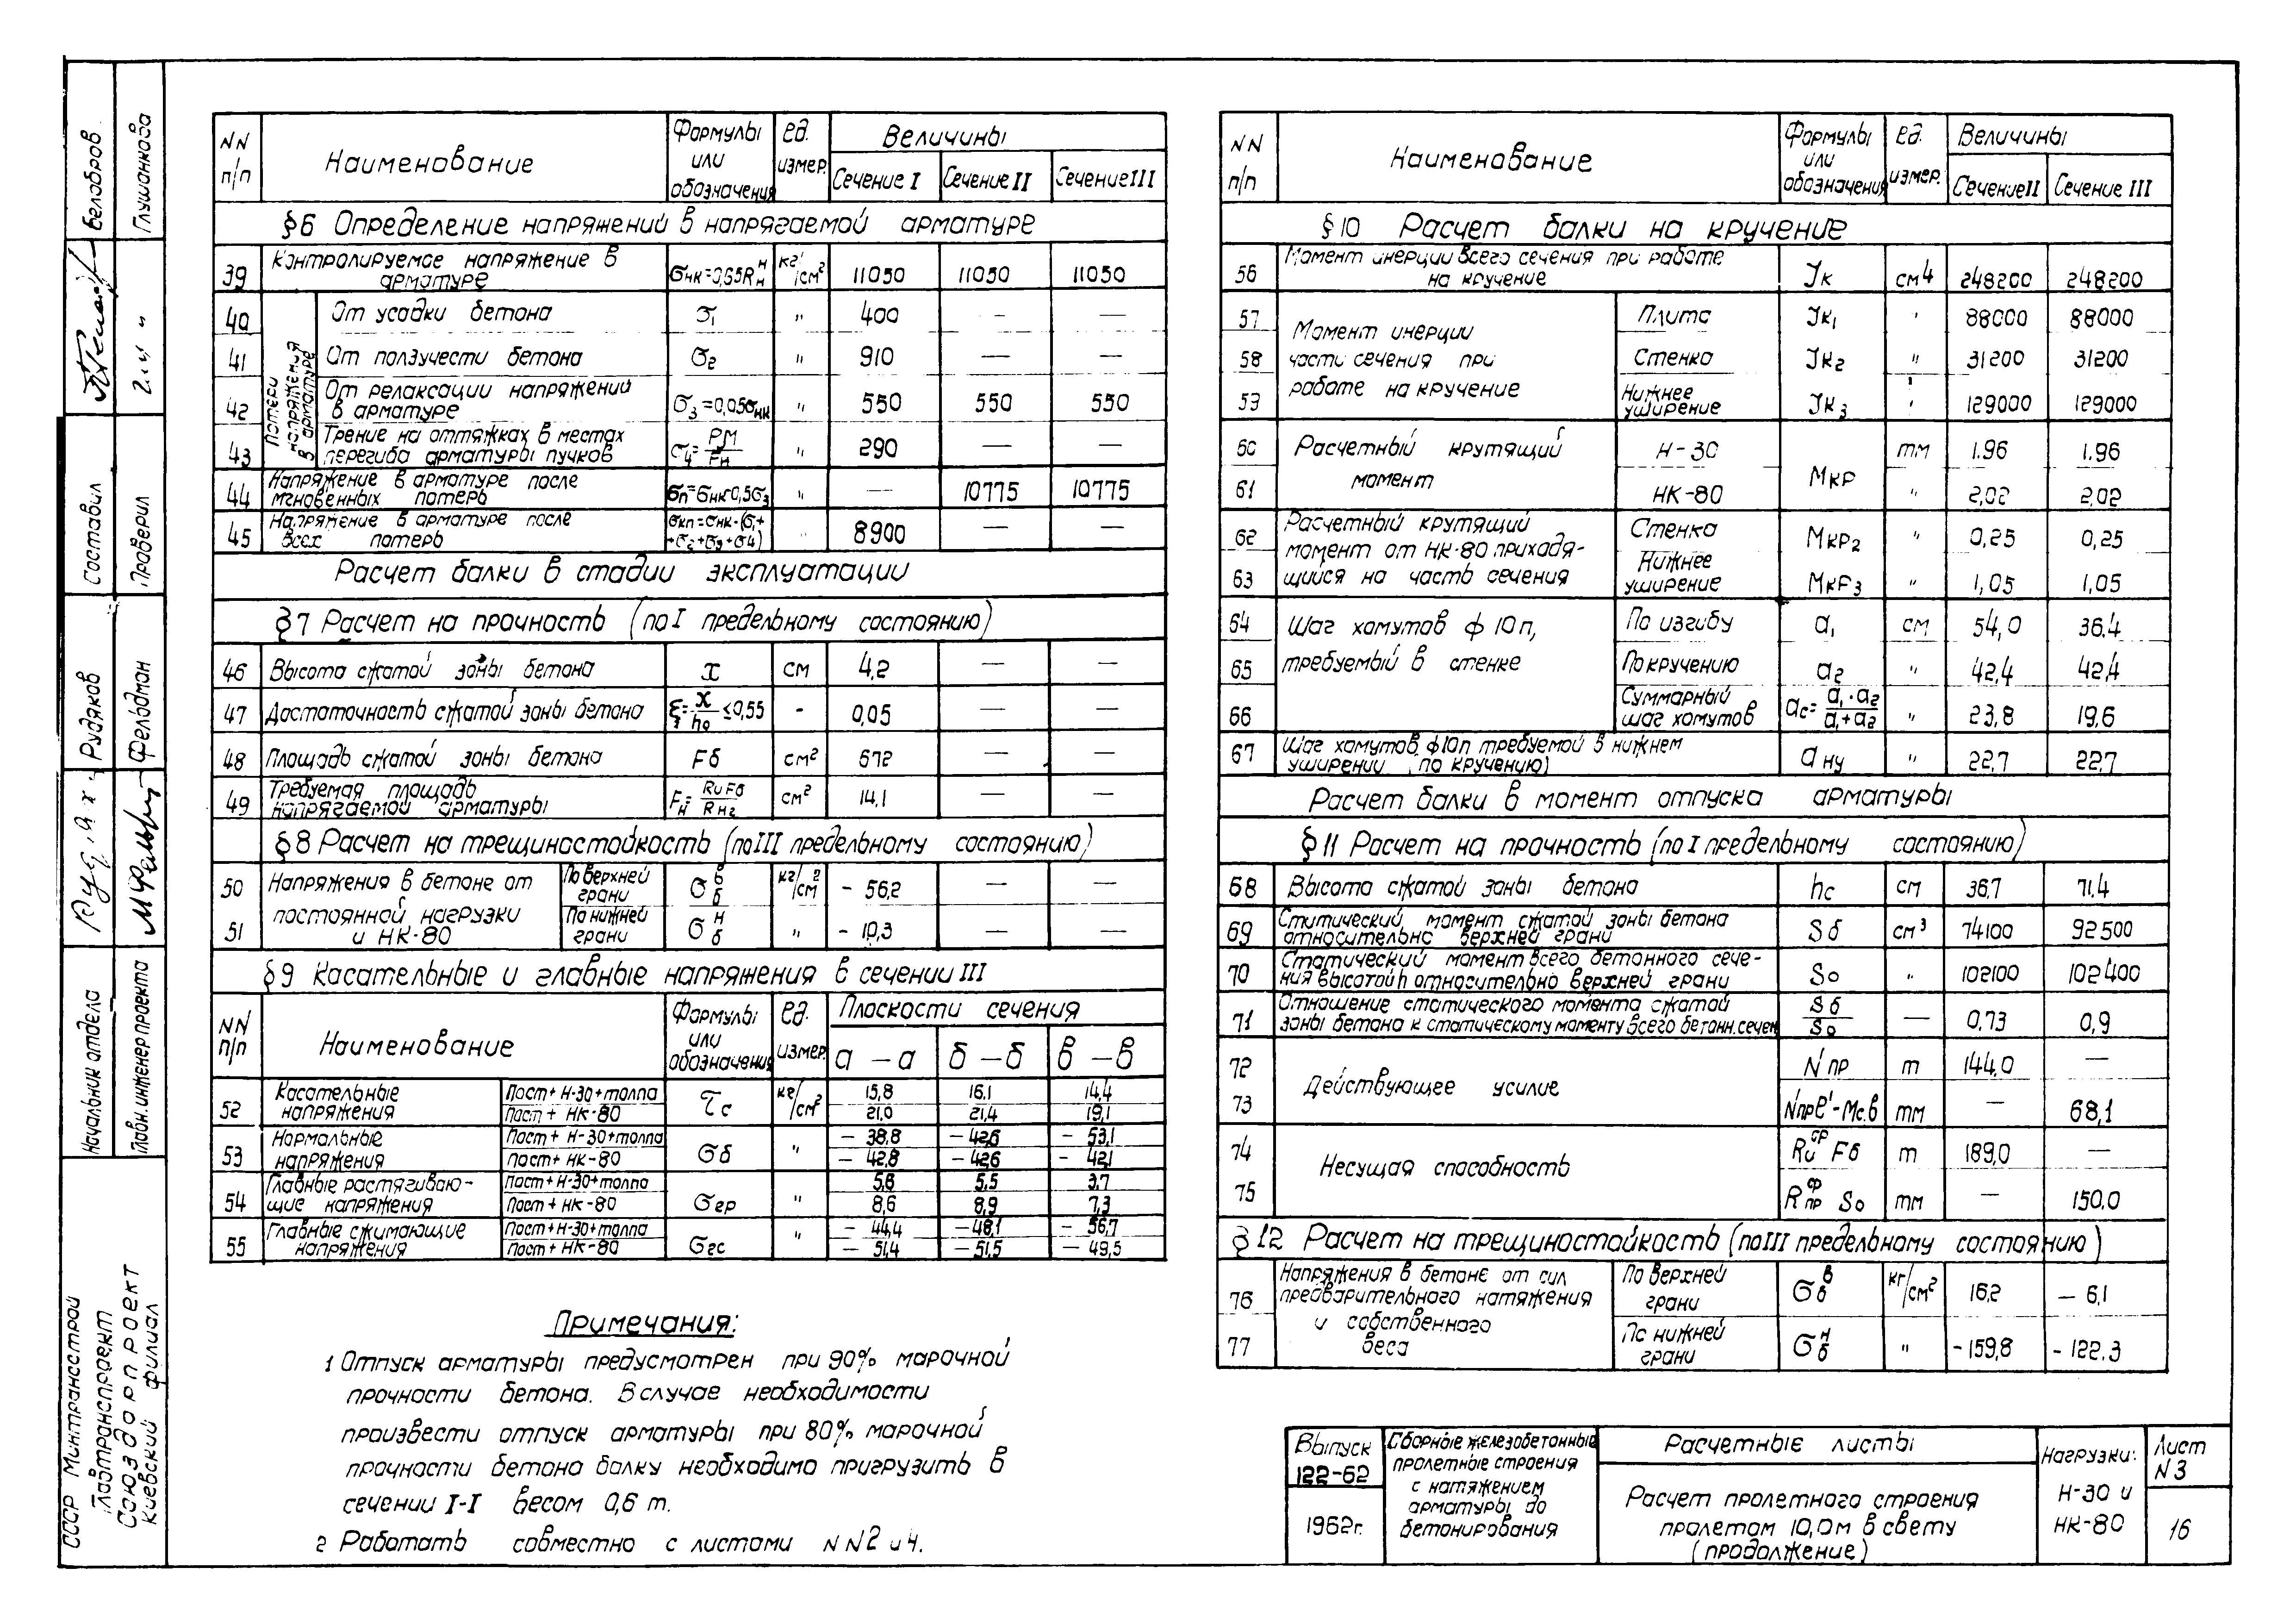 NN п/п | Наименование | Формулы или обозначения | ед. измер. | Величины
Сечение I | Сечение II | Сечение III
§6 Определение напряжений в напрягаемой арматуре
39 | Контролируемое напряжение в арматуре | σнк=0,65Rнн | кг/см² | 11050 | 11050 | 11050
Потери напряжения в арматуре
40 | От усадки бетона | σ₁ | " | 400 | — | —
41 | От ползучести бетона | σ₂ | " | 910 | — | —
42 | От релаксации напряжений в арматуре | σ₃=0,05σнк | " | 550 | 550 | 550
43 | Трение на оттяжках в местах перегиба арматуры пучков | σ₄=PM/Fн | " | 290 | — | —
44 | Напряжение в арматуре после мгновенных потерь | σп=σнк-0,5σ₃ | " | — | 10775 | 10775
45 | Напряжение в арматуре после всех потерь | σкп=σнк-(σ₁+ +σ₂+σ₃+σ4) | " | 8900 | — | —
Расчет балки в стадии эксплуатации
§7 Расчет на прочность (по I предельному состоянию)
46 | Высота сжатой зоны бетона | x | см | 4,2 | — | —
47 | Достаточность сжатой зоны бетона | ξ=x/h₀ ≤0,55 | - | 0,05 | — | —
48 | Площадь сжатой зоны бетона | Fб | см² | 672 | — | —
49 | Требуемая площадь напрягаемой арматуры | Fн=RuFб/Rн2 | см² | 14,1 | — | —
§8 Расчет на трещиностойкость (по III предельному состоянию)
Напряжения в бетоне от постоянной нагрузки и НК-80
50 | По верхней грани | σбв | кг/см² | - 56,2 | — | —
51 | По нижней грани | σбн | " | - 10,3 | — | —
§9 Касательные и главные напряжения в сечении III
NN п/п | Наименование | Формулы или обозначения | ед. измер. | Плоскости сечения
а — а | б — б | в — в
52 | Касательные напряжения | τс | кг/см²
Пост+Н-30+толпа | 15,8 | 16,1 | 14,4
Пост + НК-80 | 21,0 | 21,4 | 19,1
53 | Нормальные напряжения | σб | "
Пост+Н-30+толпа | — 38,8 | — 42,6 | — 53,1
Пост + НК-80 | — 42,8 | — 42,6 | - 42,1
54 | Главные растягивающие напряжения | σгр | "
Пост+Н-30+толпа | 5,6 | 5,5 | 3,7
Пост + НК-80 | 8,6 | 8,9 | 7,3
55 | Главные сжимающие напряжения | σгс | "
Пост+Н-30+толпа | — 44,4 | — 48,1 | — 56,7
Пост + НК-80 | — 51,4 | — 51,5 | — 49,5
Примечания:
1 Отпуск арматуры предусмотрен при 90% марочной
прочности бетона. В случае необходимости
произвести отпуск арматуры при 80% марочной
прочности бетона балку необходимо пригрузить в
сечении I-I весом 0,6 т.
2 Работать совместно с листами NN2 и 4.
NN п/п | Наименование | Формулы или обозначения | ед. измер. | Величины
Сечение II | Сечение III
§10 Расчет балки на кручение
56 | Момент инерции всего сечения при работе на кручение | Jк | см4 | 248200 | 248200
Момент инерции части сечения при работе на кручение
57 | Плита | Jк₁ | " | 88000 | 88000
58 | Стенка | Jк₂ | " | 31200 | 31200
59 | Нижнее уширение | Jк₃ | " | 129000 | 129000
Расчетный крутящий момент | Мкр
60 | Н-30 | тм | 1.96 | 1.96
61 | НК-80 | " | 2,02 | 2,02
Расчетный крутящий момент от НК-80 приходящийся на часть сечения
62 | Стенка | Мкр₂ | " | 0,25 | 0,25
63 | Нижнее уширение | Мкр₃ | " | 1,05 | 1,05
Шаг хомутов ф 10п, требуемый в стенке
64 | По изгибу | а₁ | см | 54,0 | 36,4
65 | По кручению | а₂ | " | 42,4 | 42,4
66 | Суммарный шаг хомутов | ас=а₁·а₂/а₁+а₂ | " | 23,8 | 19,6
67 | Шаг хомутов ф10п требуемой в нижнем уширении (по кручению) | а ну | " | 22,7 | 22,7
Расчет балки в момент отпуска арматуры
§11 Расчет на прочность (по I предельному состоянию)
68 | Высота сжатой зоны бетона | hс | см | 36,7 | 71,4
69 | Статический момент сжатой зоны бетона относительно верхней грани | Sб | см³ | 74100 | 92500
70 | Статический момент всего бетонного сечения высотой h относительно верхней грани | So | " | 102100 | 102400
71 | Отношение статического момента сжатой зоны бетона к статическому моменту всего бетонн. сечен | Sб/So | — | 0,73 | 0,9
Действующее усилие
72 | N пр | т | 144,0 | —
73 | Nпре'-Мс.в | тм | — | 68,1
Несущая способность
74 | Ruпр Fб | т | 189,0 | —
75 | Rпр So | тм | — | 150,0
§12 Расчет на трещиностойкость (по III предельному состоянию)
Напряжения в бетоне от сил предварительного натяжения и собственного веса
76 | По верхней грани | σбв | кг/см² | 16,2 | — 6,1
77 | По нижней грани | σбн | " | - 159,8 | - 122,3
Выпуск 122-62
1962г.
Сборные железобетонные
пролетные строения
с натяжением
арматуры до
бетонирования
Расчетные листы
Расчет пролетного строения
пролетом 10,0м в свету
(продолжение)
Нагрузки:
Н-30 и
НК-80
Лист
N3
16
Белобров
Глушанкова
Составил
Проверил
Рудяков
Фельдман
Начальник отдела
Главн. инженер проекта
СССР Минтрансстрой
Главтранспроект
Союздорпроект
Киевский филиал